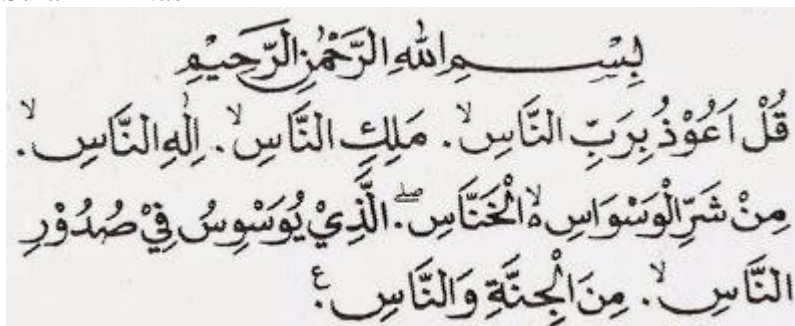 بِسْـــــمِ اللهِ الرَّحْمٰنِ الرَّحِيْمِ
قُلْ اَعُوْذُ بِرَبِّ النَّاسِ ۙ. مَلِكِ النَّاسِ ۙ. اِلٰهِ النَّاسِ ۙ.
مِنْ شَرِّ الْوَسْوَاسِ ەۙ الْخَنَّاسِ ۖ. الَّذِيْ يُوَسْوِسُ فِيْ صُدُوْرِ
النَّاسِ ۙ. مِنَ الْجِنَّةِ وَالنَّاسِ ࣖ.